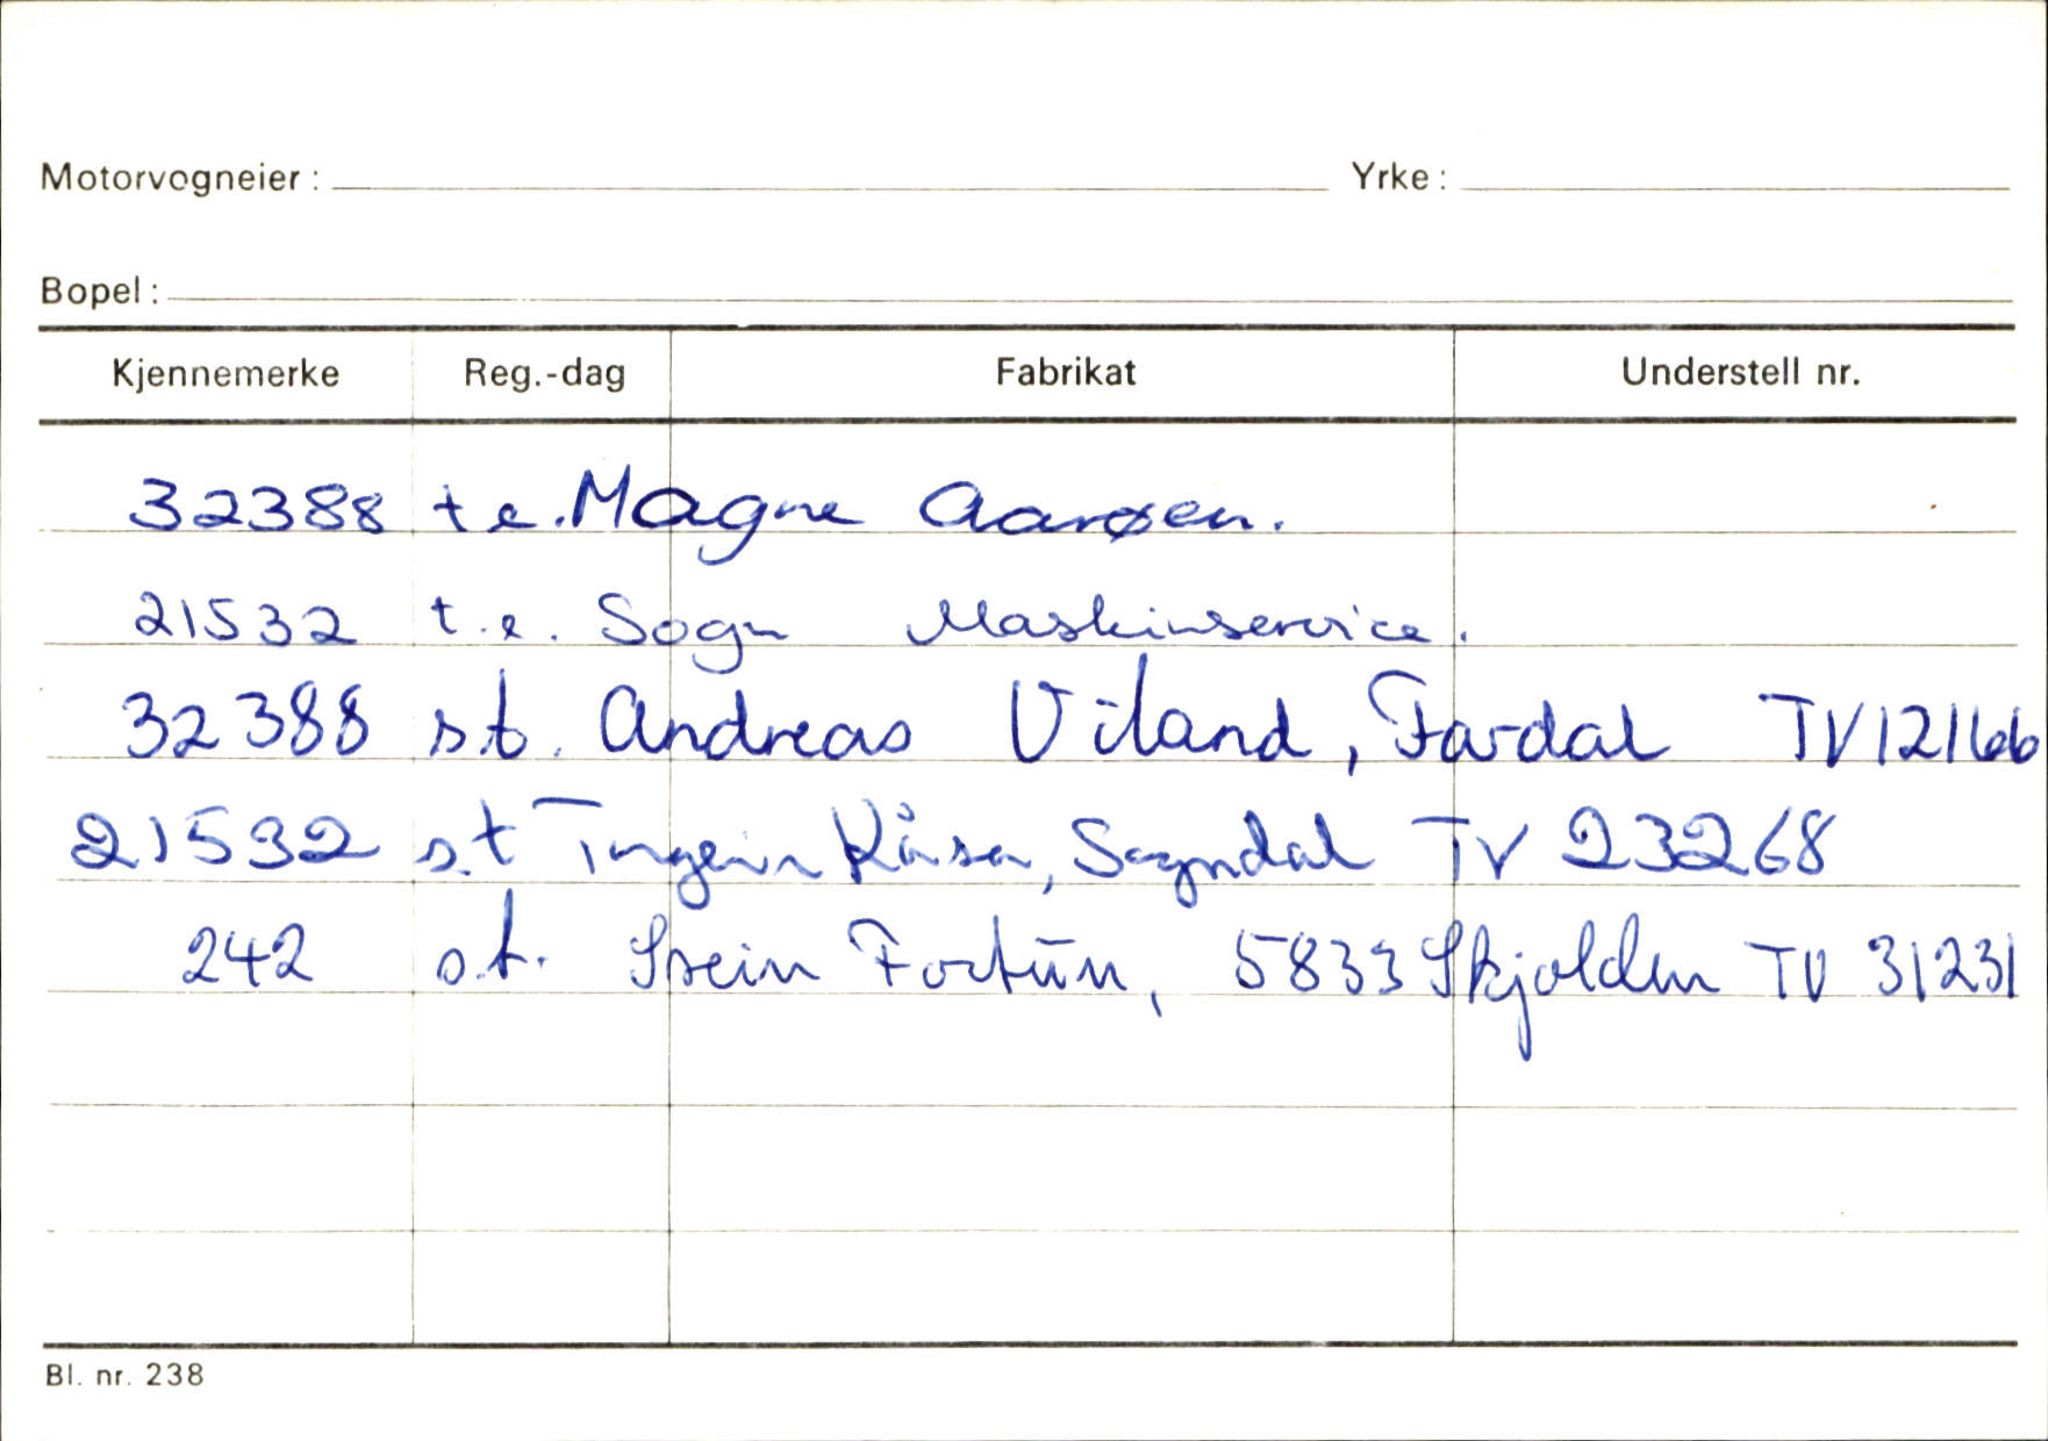 Motorvogneier : Yrke :
Bopel :
Kjennemerke Reg.-dag Fabrikat Understell nr.
32388 t e. Magne Aarøen.
21532 t.e. Sogn Maskinservice.
32388 s.t. Andreas Viland, Fardal TV12166
21532 s.t Kåsa, Sogndal TV 23268
242 s.t. Svein Fortun, 5833 Skjolden TV 31231
Bl. nr. 238